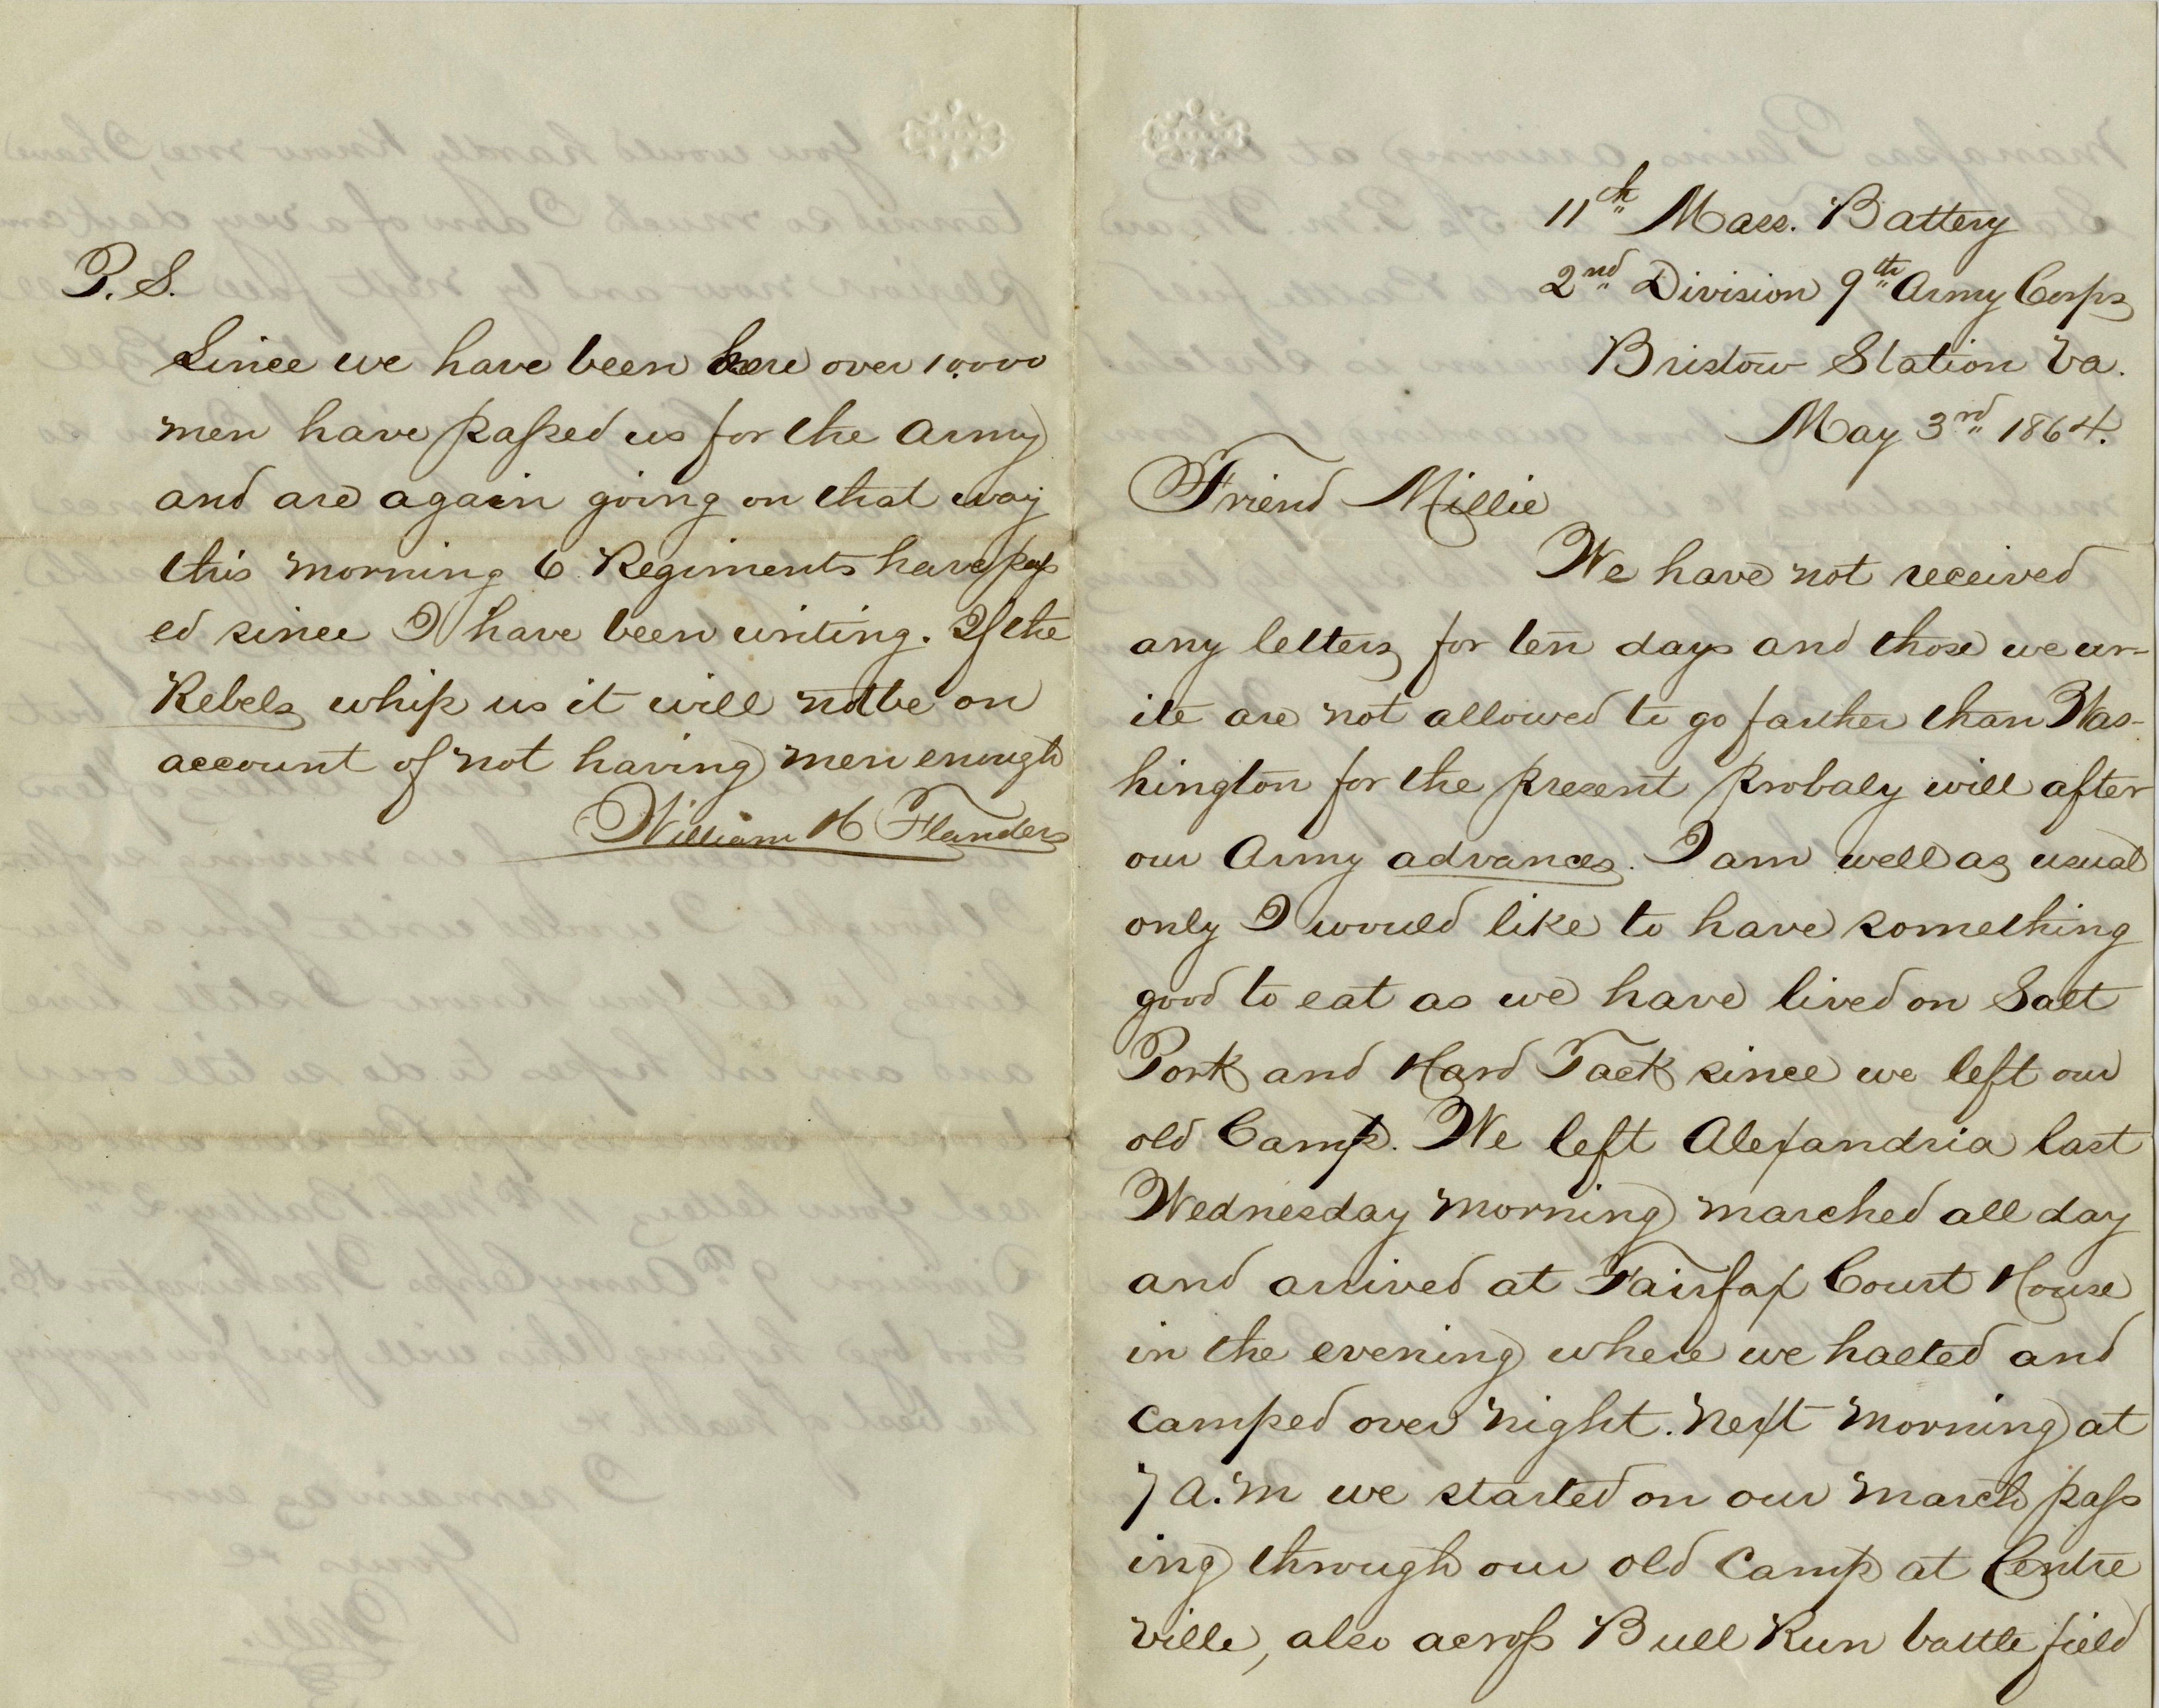 11th Mass. Battery
2nd Division 9th Army Corps
Bristow Station Va.
May 3rd 1864.
Friend Millie
We have not received
any letters for ten days and those we wr-
ite are not allowed to go farther than Was-
hington for the present probaly will after
our Army advances. I am well as usual
only I would like to have something
good to eat as we have lived on Salt
Pork and Hard Tack since we left our
old Camp. We left Alexandria last
Wednesday morning marched all day
and arrived at Fairfax Court House
in the evening where we halted and
camped over night. Next morning at
7 a.m we started on our march pass
ing through our old Camp at Centre
ville, also across Bull Run battle field
P.S.
Since we have been here over 10.000
men have passed us for the Army
and are again going on that way
this morning 6 Regiments have pass
ed since I have been writing. If the
Rebels whip us it will not be on
account of not having men enough
William H Flanders